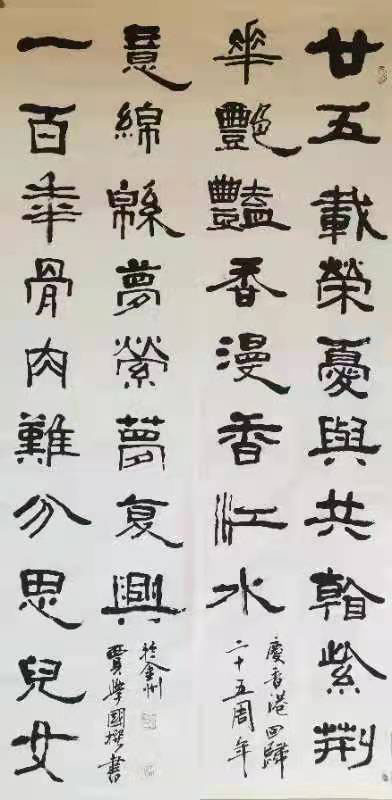 廿五載榮憂與共翰紫荆
華艷豔香漫香江水
慶香港回歸
二十五周年
一百年骨肉難分思兒女
意綿緜夢縈夢复興
賈學國撰書
於金州